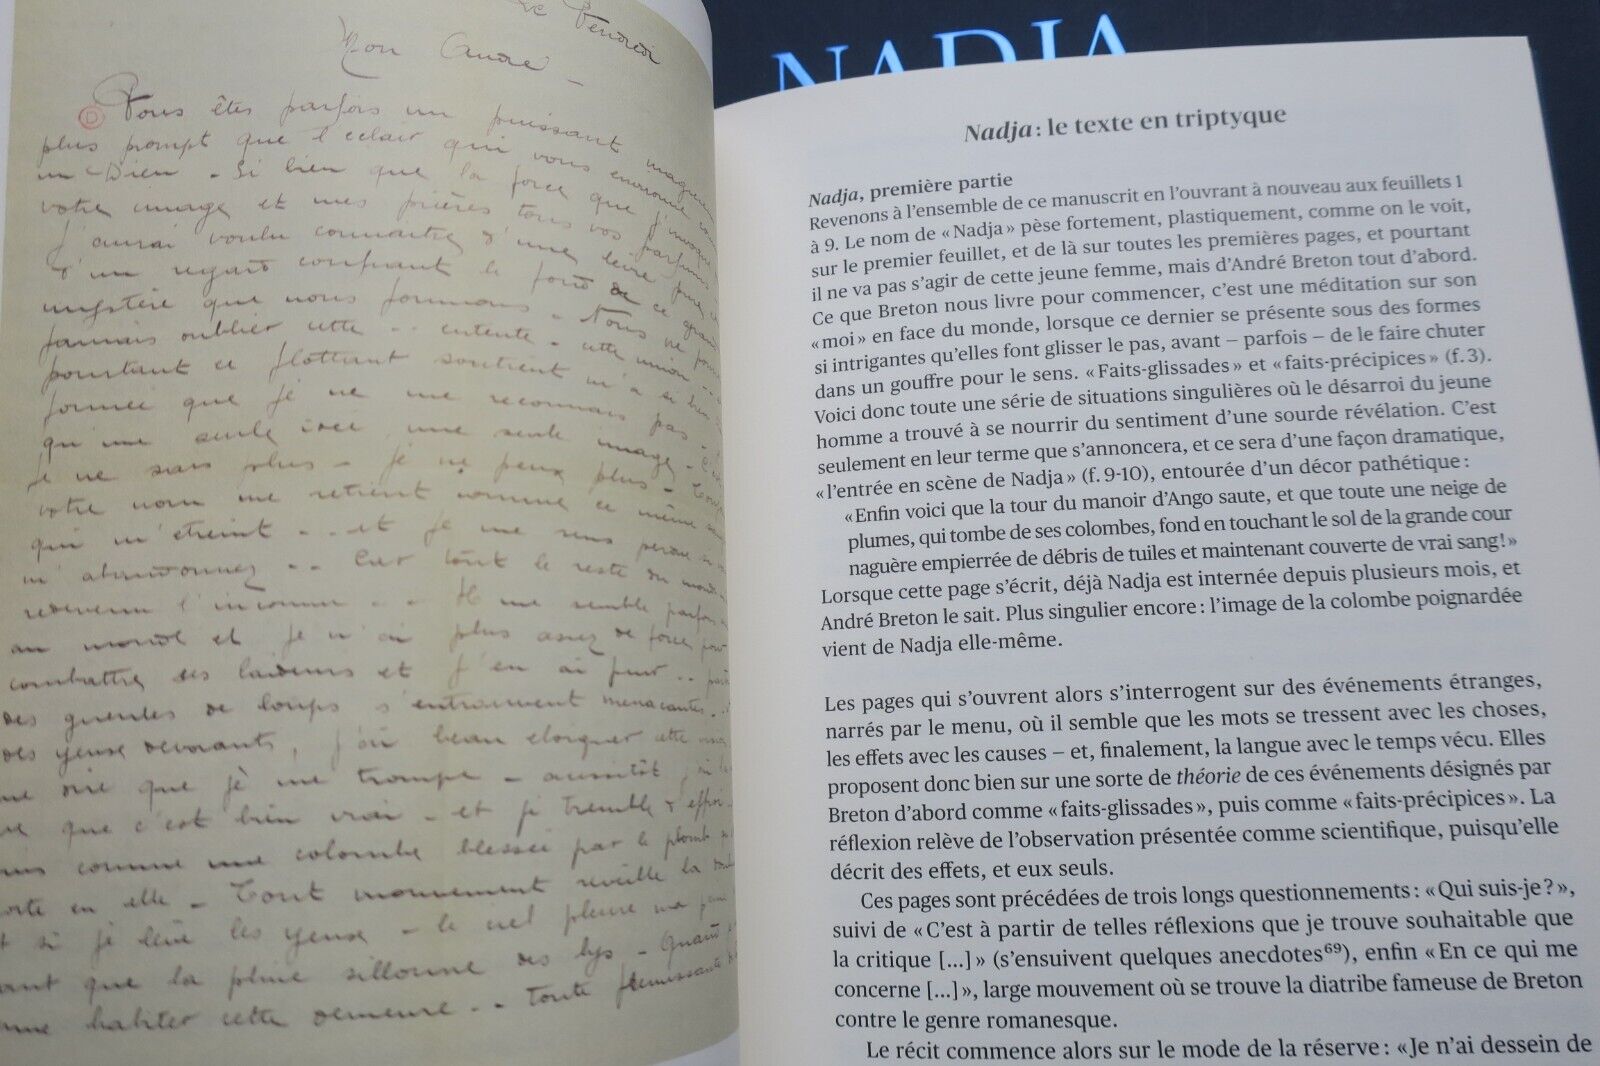 Le Vendredi
Mon André –
D Vous êtes parfois un puissant
plus prompt que l'éclair qui vous environne
un Dieu – Si bien que la force que j'invoque
votre image et mes prières tous vos parfums
J'aurai voulu connaître d'une lèvre pure
d'un regard confiant le fond de ce grand
mystère que nous formions – Nous ne
jamais oublier cette .. entente – cette union –
pourtant ce flottant soutient m'a si bien
formée que je ne me reconnais pas –
qu'une seule idée une seule image –
Je ne sais plus – je ne peux plus –
votre nom me retient comme ce même
qui m'étreint ... et je me sens perdue si
m'abandonnez .. Car tout le reste du monde
redevenu l'inconnu .. Il me semble parfois
au monde et je n'ai plus assez de force pour
combattre ses laideurs et j'en ai peur ..
des gueules de loups s'entrouvrent menaçantes ..
des yeux dévorants, j'ai beau éloigner cette vision
me dire que je me trompe – aussitôt j'ai
que c'est bien vrai – et je tremble d'effroi –
comme une colombe blessée par le plomb
porte en elle – Tout mouvement réveille la
et si je lève les yeux – le ciel pleure ma
que la pluie sillonne des lys – Quand
habiter cette demeure .. Toute frémissante
NADJA
Nadja : le texte en triptyque
Nadja, première partie
Revenons à l'ensemble de ce manuscrit en l'ouvrant à nouveau aux feuillets 1
à 9. Le nom de « Nadja » pèse fortement, plastiquement, comme on le voit,
sur le premier feuillet, et de là sur toutes les premières pages, et pourtant
il ne va pas s'agir de cette jeune femme, mais d'André Breton tout d'abord.
Ce que Breton nous livre pour commencer, c'est une méditation sur son
« moi » en face du monde, lorsque ce dernier se présente sous des formes
si intrigantes qu'elles font glisser le pas, avant – parfois – de le faire chuter
dans un gouffre pour le sens. « Faits-glissades » et « faits-précipices » (f. 3).
Voici donc toute une série de situations singulières où le désarroi du jeune
homme a trouvé à se nourrir du sentiment d'une sourde révélation. C'est
seulement en leur terme que s'annoncera, et ce sera d'une façon dramatique,
« l'entrée en scène de Nadja » (f. 9-10), entourée d'un décor pathétique :
« Enfin voici que la tour du manoir d'Ango saute, et que toute une neige de
plumes, qui tombe de ses colombes, fond en touchant le sol de la grande cour
naguère empierrée de débris de tuiles et maintenant couverte de vrai sang! »
Lorsque cette page s'écrit, déjà Nadja est internée depuis plusieurs mois, et
André Breton le sait. Plus singulier encore : l'image de la colombe poignardée
vient de Nadja elle-même.
Les pages qui s'ouvrent alors s'interrogent sur des événements étranges,
narrés par le menu, où il semble que les mots se tressent avec les choses,
les effets avec les causes – et, finalement, la langue avec le temps vécu. Elles
proposent donc bien sur une sorte de théorie de ces événements désignés par
Breton d'abord comme « faits-glissades », puis comme « faits-précipices ». La
réflexion relève de l'observation présentée comme scientifique, puisqu'elle
décrit des effets, et eux seuls.
Ces pages sont précédées de trois longs questionnements : « Qui suis-je ? »,
suivi de « C'est à partir de telles réflexions que je trouve souhaitable que
la critique [...] » (s'ensuivent quelques anecdotes⁶⁹), enfin « En ce qui me
concerne [...] », large mouvement où se trouve la diatribe fameuse de Breton
contre le genre romanesque.
Le récit commence alors sur le mode de la réserve : « Je n'ai dessein de